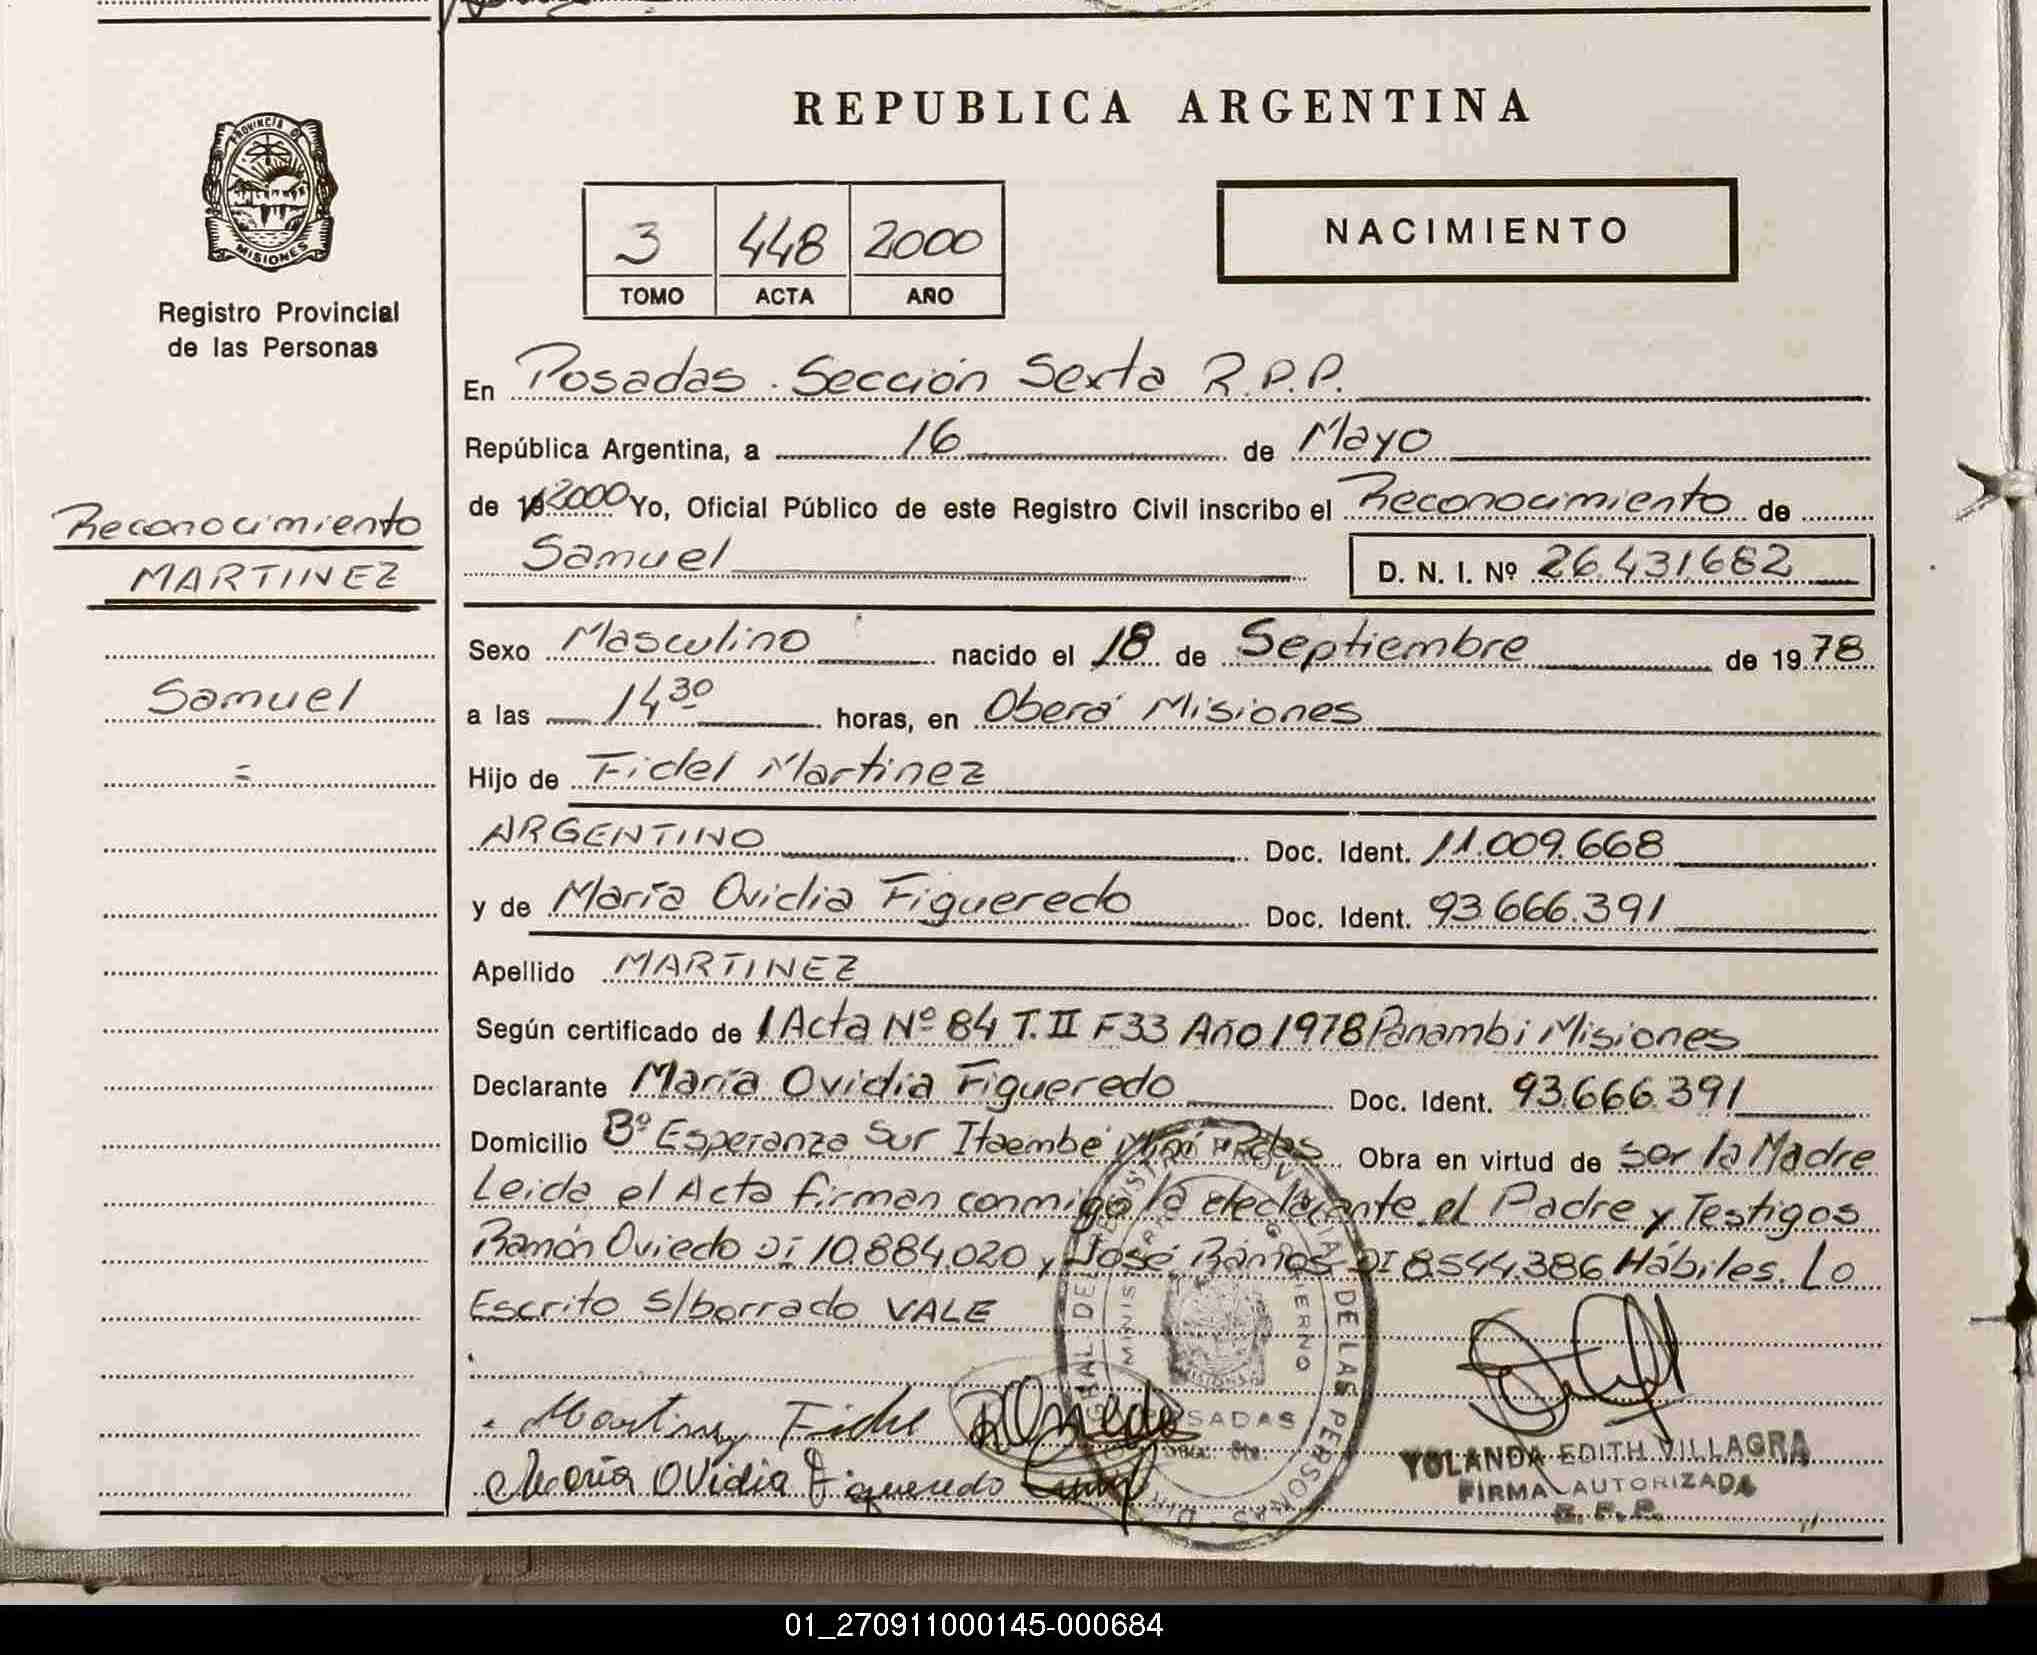 REPUBLICA ARGENTINA
PROVINCIA D
MISIONES
Registro Provincial
de las Personas
3 448 2000
TOMO ACTA AÑO
NACIMIENTO
En Posadas. Sección Sexta R.P.P.
República Argentina, a 16 de Mayo
de 19 2000 Yo, Oficial Público de este Registro Civil inscribo el Reconocimiento de
Samuel D. N. I. Nº 26.431.682
Reconocimiento
MARTINEZ
Samuel
=
Sexo Masculino nacido el 18 de Septiembre de 1978
a las 14 30 horas, en Oberá Misiones
Hijo de Fidel Martinez
ARGENTINO Doc. Ident. 11.009.668
y de María Ovidia Figueredo Doc. Ident. 93.666.391
Apellido MARTINEZ
Según certificado de Acta Nº 84 T. II F 33 Año 1978 Panambi Misiones
Declarante María Ovidia Figueredo Doc. Ident. 93.666.391
Domicilio Bº Esperanza Sur Itaembé Miní Pdas Obra en virtud de ser la Madre
Leida el Acta firman conmigo la declarante el Padre y Testigos
Ramón Oviedo DI 10.884.020 y José Ramos DI 8.544.386 Hábiles. Lo
Escrito s/borrado VALE
DE LAS PERSONAS
POSADAS
YOLANDA EDITH VILLAGRA
FIRMA AUTORIZADA
María Ovidia Figueredo
01_270911000145-000684